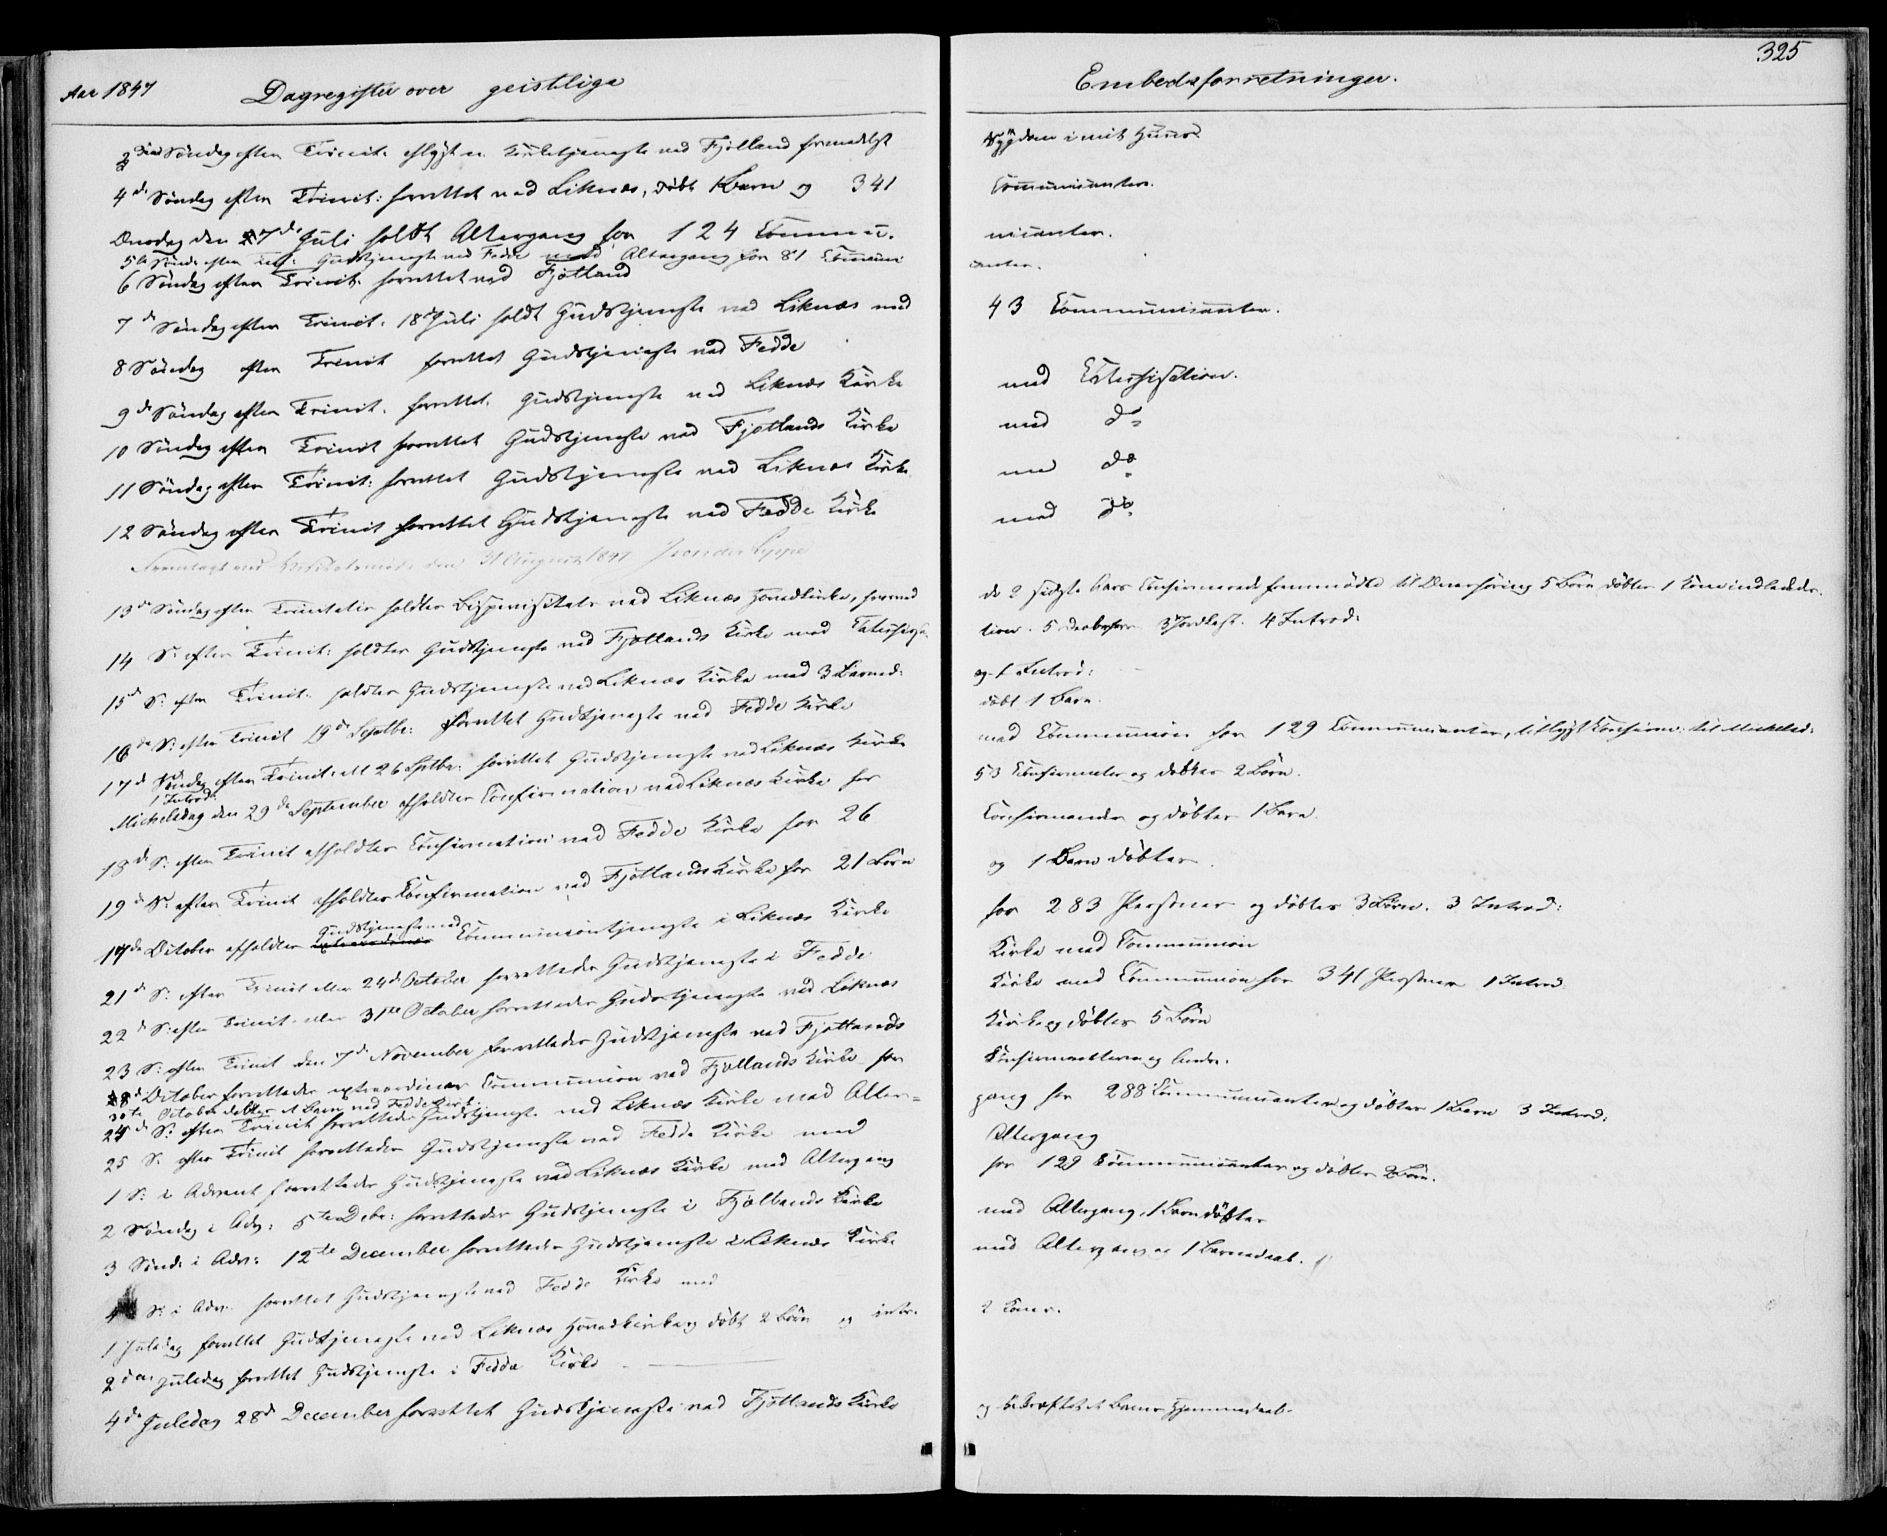 325
Aar 1847 Dagregister over geistlige Embedsforretninger.
3die Søndag efter Trinit. aflyst en Kirketjeneste ved Fjotland formedelst Sygdom i mit Huus.
4de Søndag efter Trinit: forrettet ved Liknæs, døbt 1 Barn og 341 Communicanter.
Onsdag den 7de Juli holdt Altergang for 124 Communicanter.
5te Sønd: efter Trin: Gudstjeneste ved Fedde med Altergang for 81 Communicanter.
6 Søndag efter Trinit. forrettet ved Fjotland
7de Søndag efter Trinit. 18de Juli holdt Gudstjeneste ved Liknæs med 43 Communicanter.
8 Søndag efter Trinit forrettet Gudstjeneste ved Fedde
9de Søndag efter Trinit. forrettet Gudstjeneste ved Liknæs Kirke med Catechisation.
10 Søndag efter Trinit forrettet Gudstjeneste ved Fjotlands Kirke med do
11 Søndag efter Trinit: forrettet Gudstjeneste ved Liknæs Kirke med do
12 Søndag efter Trinit forrettet Gudstjeneste ved Fedde Kirke med do
Fremlagt ved den 31 August 1847
13de Søndag efter Trinitatis holdtes Bispevisitats ved Liknæs Hovedkirke, hvorved de 2 sidste Aars Confirmerede fremmødte til Overhøring 5 Børn døbtes 1 Kone indledede.
14 S: efter Trinit: holdtes Gudstjeneste ved Fjotlands Kirke med Catechisation. 5 3 Jordkast. 4 Introd:
15de S: efter Trinit. holdtes Gudstjeneste ved Liknæs Kirke med 3 Barned: og 1 Introd:
16de S: efter Trinit 19de Septbr: forrettet Gudstjeneste ved Fedde Kirke døbt 1 Barn.
17de Søndag efter Trinit: 26 Septbr: forrettet Gudstjeneste ved Liknæs Kirke med Communion for 129 Communicanter, Confirm: til Michelsd:
1 Introd:
Michelsdag den 29de September afholdtes Confirmation ved Liknæs Kirke for 53 Confirmanter og døbtes 2 Børn.
18de S: efter Trinit afholdtes Confirmation ved Fedde Kirke for 26 Confirmander og døbtes 1 Barn.
19de S: efter Trinit afholdtes Confirmation ved Fjotlands Kirke for 21 Børn og 1 Barn døbtes.
17de October afholdtes Gudstjeneste med Communiontjeneste i Liknæs Kirke for 283 Personer og døbtes 3 Børn. 3 Introd:
21de S: efter Trinit eller 24de October forrettedes Gudstjeneste i Fedde Kirke med Communion
22de S: efter Trinit. eller 31te October forrettedes Gudstjeneste ved Liknæs Kirke med Communion for 341 Personer 1 Introd.
23 S: efter Trinit den 7de November forrettedes Gudstjeneste ved Fjotlands Kirke og døbtes 5 Børn
28de October forrettedes extraordinær Communion ved Fjotlands Kirke for Confirmanterne og Andre.
30te October døbtes et Barn ved Fedde Kirke.
24de S: efter Trinit forrettedes Gudstjeneste ved Liknæs Kirke med Altergang for 288 Communicanter og døbtes 1 Barn 3 Introd:
25 S. efter Trinit forrettedes Gudstjeneste ved Fedde Kirke med Altergang
1 S: i Advent forrettedes Gudstjeneste ved Liknæs Kirke med Altergang for 129 Communicanter og døbtes 2 Børn.
2 Søndag i Adv: 5te Decbr: forrettedes Gudstjeneste i Fjotlands Kirke med Altergang, 1 Barn døbtes
3 Sønd: i Adv: 12te December forrettedes Gudstjeneste i Liknæs Kirke med Altergang og 1 Barnedaab.
4 S: i Adv. forrettet Gudstjeneste ved Fedde Kirke med
1 Juledag forrettet Gudstjeneste ved Liknæs Hovedkirke og døbt 2 Børn og intr. 2 Koner.
2den Juledag forrettet Gudstjeneste i Fedde Kirke
4de Juledag 28de December forrettet Gudstjeneste ved Fjotlands Kirke og bekræftet et Barns Hjemmedaab.